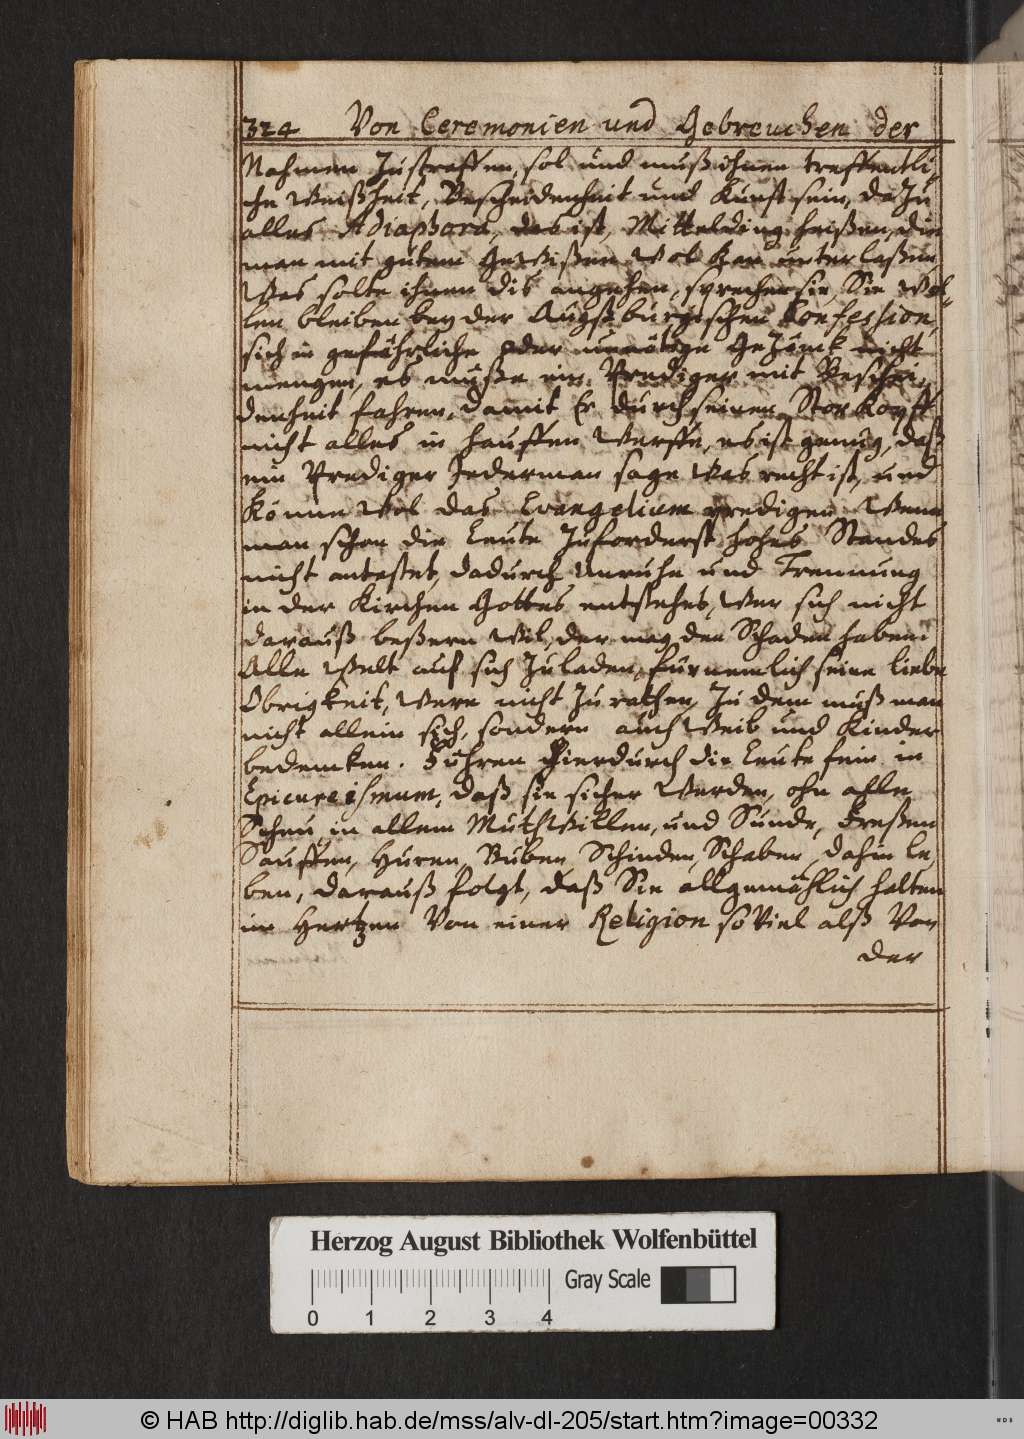 324 Von Ceremonien und Gebreuchen der
Nahmen Zustraffen, sol und muß ihnen treffentli,
che Weißheit, Bescheidenheit und Kunst sein, da Zu
alles Adiaphora, das ist, Mittelding heißen, die
man mit gutem Gewißen Wol kan unterlaßen,
Was solte ihnen dis angehen, sprechen sie, Sie Wol,
len bleiben bey der Augsburgischen Konfession,
sich in gefährliche oder unnötige Gezänck nicht
mengen, es muße ein Prediger mit Beschei,
denheit fahren, damit Er durch seinen Storkopff
nicht alles in hauffen Werffe, es ist genug, daß
ein Prediger Jederman sage Was recht ist, und
Könne Wol das Evangelium predigen Wenn
man schon die Leute Zuforderst hohes Standes
nicht antastet, dadurch Unruhe und Trennung
in der Kirchen Gottes entstehet, Wer sich nicht
darauß beßern Wil, der mag den Schaden haben.
Alle Welt auf sich Zuladen, furnemlich seine liebe
Obrigkeit, Were nicht Zu rathen, Zu dem muß man
nicht allein sich, sondern auch Weib und Kinder
bedencken. Führen hierdurch die Leute fein in
Epicureismum, daß sie sicher Werden, ohn alle
Scheu, in allem Muthwillen, und Sunde, Freßen
Sauffen, Huren, Buben, Schinden, Schaben, dahin le,
ben, darauß folgt, daß Sie allgemählich halten
im Hertzen Von einer Religion so Viel alß Von
der
Herzog August Bibliothek Wolfenbüttel
Gray Scale
0 1 2 3 4
© HAB http://diglib.hab.de/mss/alv-dl-205/start.htm?image=00332